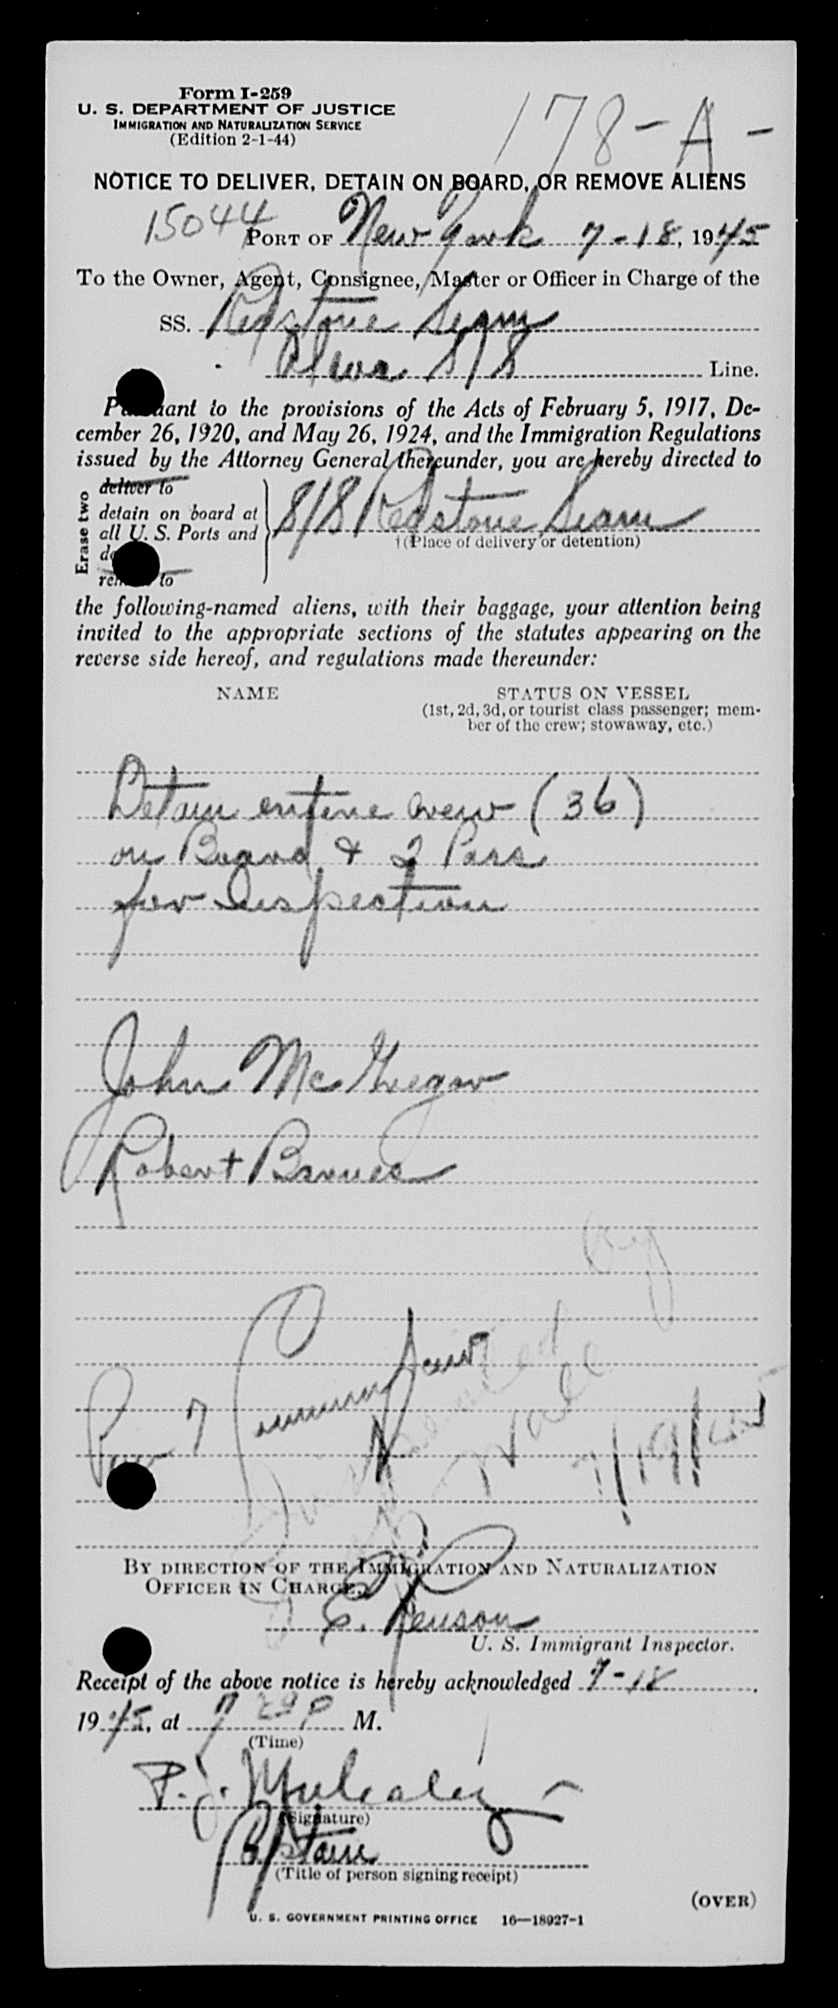 Form I-259
U. S. DEPARTMENT OF JUSTICE
IMMIGRATION AND NATURALIZATION SERVICE
(Edition 2-1-44)
178-A-
NOTICE TO DELIVER, DETAIN ON BOARD, OR REMOVE ALIENS
15044
PORT OF New York 7-18, 1945
To the Owner, Agent, Consignee, Master or Officer in Charge of the
SS. Redstone Seam
Alcoa S/S Line.
Pursuant to the provisions of the Acts of February 5, 1917, De-
cember 26, 1920, and May 26, 1924, and the Immigration Regulations
issued by the Attorney General thereunder, you are hereby directed to
Erase two
deliver to
detain on board at
all U. S. Ports and
remove to
S/S Redstone Seam
†(Place of delivery or detention)
the following-named aliens, with their baggage, your attention being
invited to the appropriate sections of the statutes appearing on the
reverse side hereof, and regulations made thereunder:
NAME STATUS ON VESSEL
(1st, 2d, 3d, or tourist class passenger; mem-
ber of the crew; stowaway, etc.)
Detain entire crew (36)
on Board & 2 Pass
for Inspection
John McGregor
Robert Barnes
By
7/19/45
BY DIRECTION OF THE IMMIGRATION AND NATURALIZATION
OFFICER IN CHARGE,
U. S. Immigrant Inspector.
Receipt of the above notice is hereby acknowledged 7-18,
1945, at 7 29 P M.
(Time)
P. J. Mulcaley
(Signature)
Captain
(Title of person signing receipt)
(OVER)
U. S. GOVERNMENT PRINTING OFFICE 16—18927-1